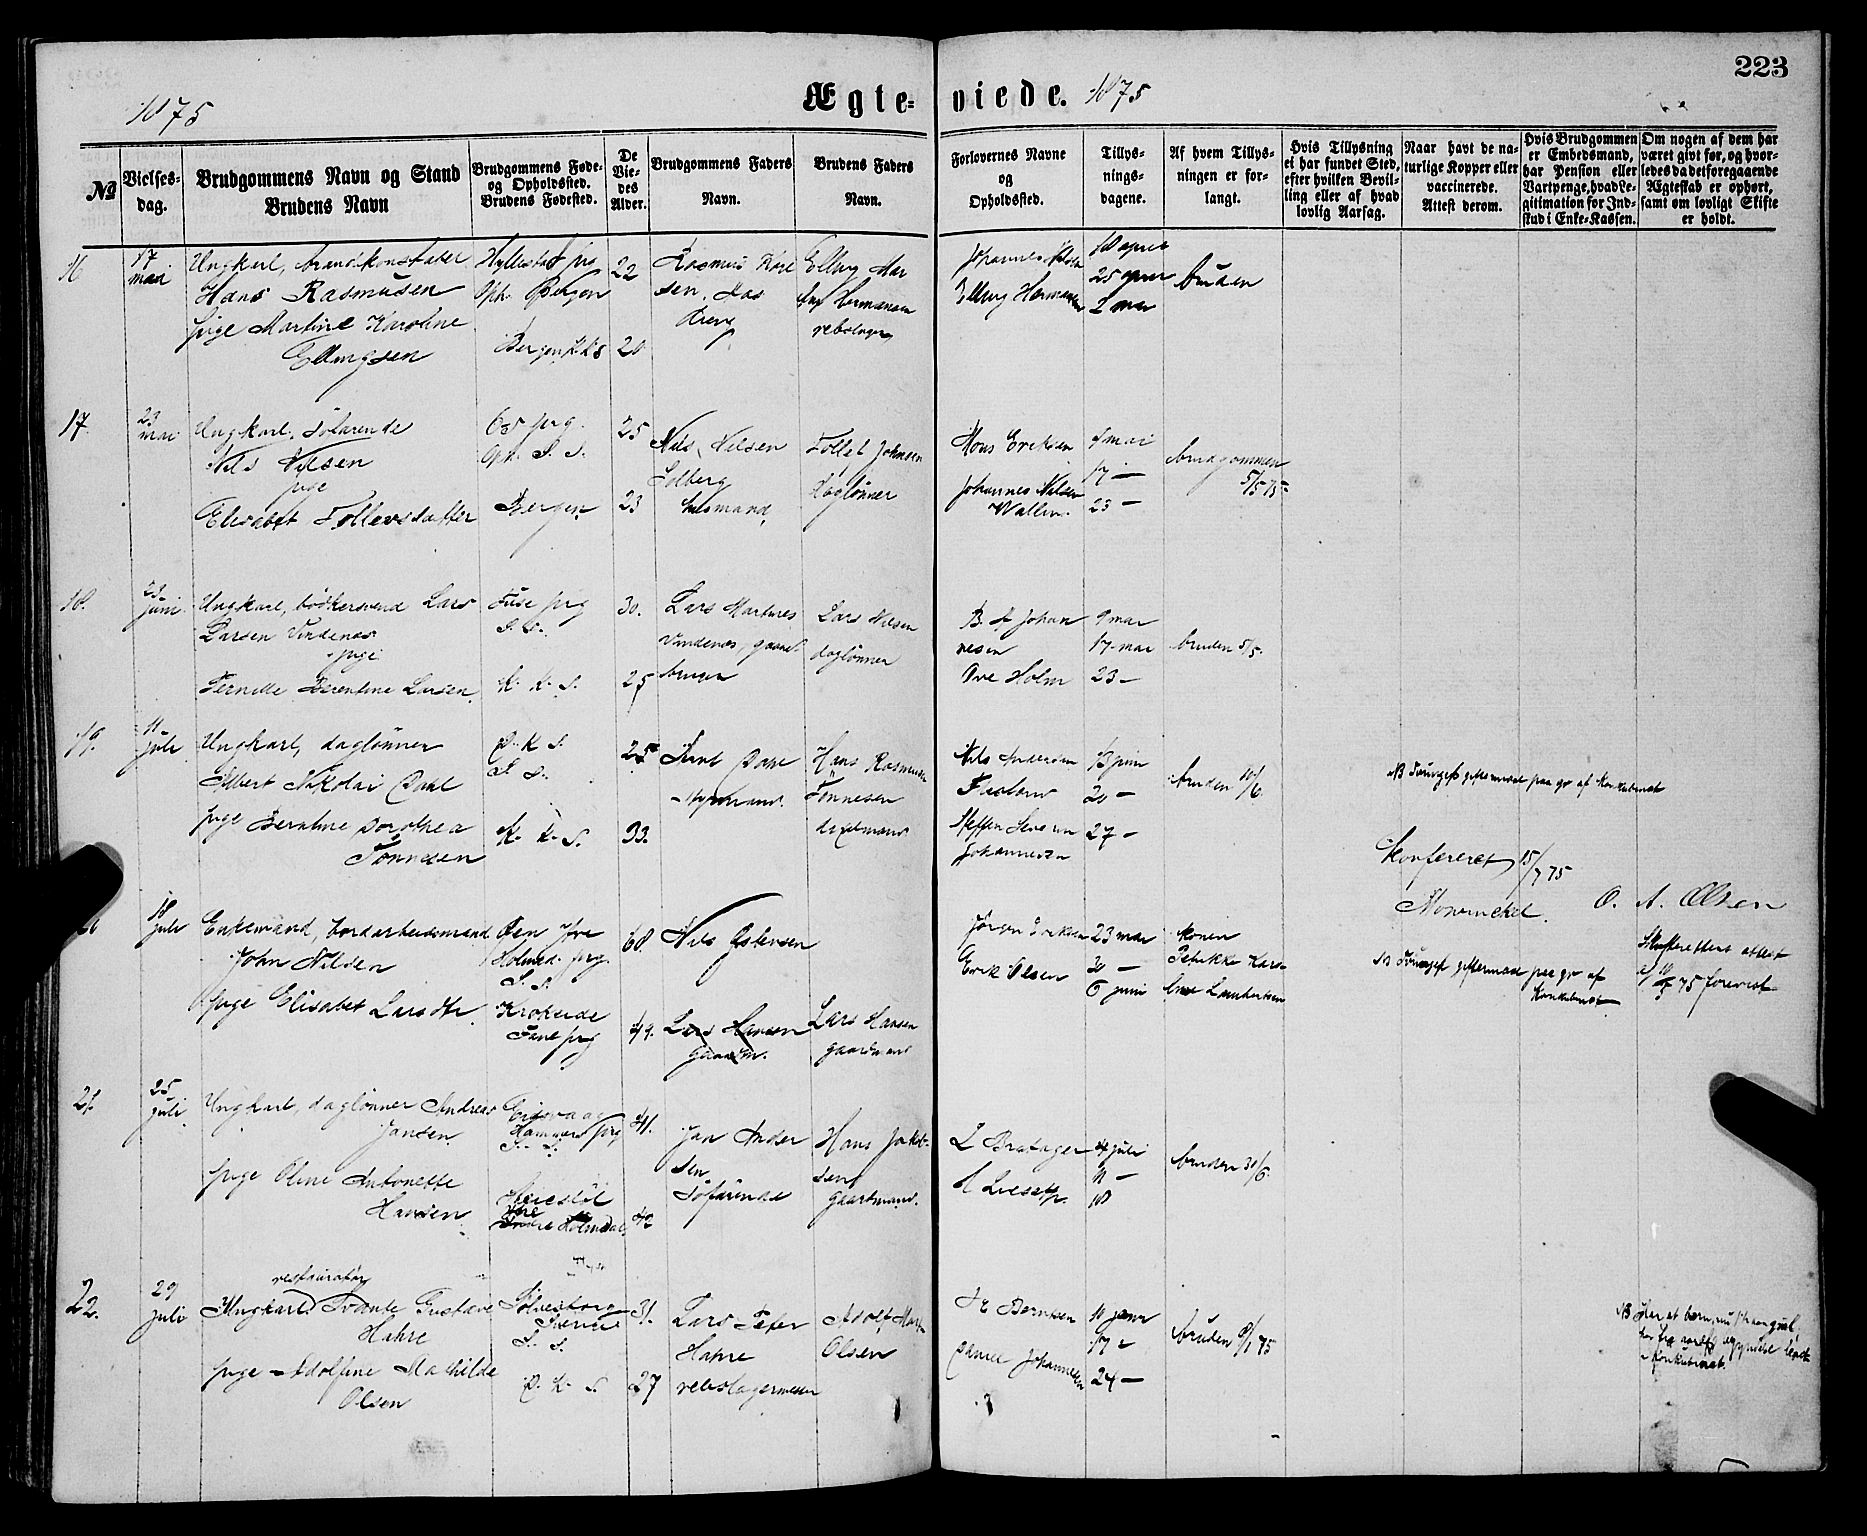 223
1875
Ægte-viede.
1875
No
Vielses-
dag.
Brudgommens Navn og Stand
Brudens Navn
Brudgommens Føde-
og Opholdssted.
Brudens Fødested.
De
Vie-
des
Alder.
Brudgommens Faders
Navn.
Brudens Faders
Navn.
Forlovernes Navne
og
Opholdssted.
Tillys-
nings-
dagene.
Af hvem Tillys-
ningen er for-
langt.
Hvis Tillysning
ei har fundet Sted,
efter hvilken Bevil-
ling eller af hvad
lovlig Aarsag.
Naar havt de na-
turlige Kopper eller
vaccinerede.
Attest derom.
Hvis Brudgommen
er Embedsmand,
har Pension eller
Vartpenge, hvad Le-
gitimation for Ind-
skud i Enke-Kassen.
Om nogen af dem har
været givt før, og hvor-
ledes da det foregaaende
Ægteskab er ophørt,
samt om lovligt Skifte
er holdt.
16
17 mai
Ungkarl, brandkonstabel
Hans Rasmusen
pige Martine Karoline
Ellingsen
Hyllestad prg
Oph. Bergen
Bergen K.K.S
22
20
Rasmus
sen,
Elling
Hermansen
rebslager
Johannes
Elling Hermansen
18 april
25 april
2 mai
bruden
17.
23 mai
Ungkarl, söfarende
Nils Nilsen
pige
Elisabet Tollevsdatter
Os prg.
Oph. S. S.
Bergen
25
23
Nils Nilsen
Solberg
husmand
Tollef Johnsen
daglönner
Mons Eriksen
Johannes Nilsen
Wallem
9 mai
17 —
23 —
brudgommen
5/5 75
18.
23 juni
Ungkarl, bödkersvend Lars
Larsen Vindenæs
pige
Pernille Berentine Larsen
Fuse prg
S. S.
K. K. S.
30.
25
Lars Martines
Vindenæs, gaard
bruger
Lars Nilsen
daglönner
B. A Johan
nesen
Ove Holm
9 mai
17 mai
23 —
bruden 5/5.
19.
11 juli
Ungkarl, daglönner
Albert Nikolai Dahl
pige Berntine Dorothea
Tönnesen
D. K S.
S S.
K. K. S.
25
33.
Dahl
Styrmand.
Hans Rasmusen
Tönnesen
Nils Andersen
Steffen Severin
Johannesen
13 juni
20 —
27 —
bruden 10/6
NB Tvunget giftermaal paa gr af Konkubinat
Konfereret 15/7 75
O. A. Olsen
18 juli
Enkemand, bordarbeidsmand
John Nilsen
pige Elisabet Larsdtr
Öen Ytre
Holmed. prg.
S. S.
Krokeide
Fane prg
68.
49.
Nils Östensen
Lars Hansen
gaardm.
Lars Hansen
gaardmand
Jörgen Eriksen
Erik Olsen
23 mai
30 —
6 juni
konen
Petrikke Karo-
line Lambertsen
NB Tvunget giftermaal paa gr af
Konkubinat
Skifterettens attest
af 10/5 75 forevist
21.
25 juli
Ungkarl, daglönner Andreas
Jansen
pige Oline Antonette
Hansen
Eidsvaag
Hammers prg
S. S.
Ytre
Indre Holmedal
41.
42
Jan Ander
sen
Söfarende
Hans Jakob-
sen
gaardmand.
L Bratager
4 juli
11 —
18
bruden 30/6.
22.
29 juli
restauratör
Ungkarl Svante Gustave
Hahre
pige Adolfine Mathilde
Olsen
Sölvesborg
Sverige
S. S.
D. K. S.
31.
27
Lars Peter
Hahre
rebslagermester
Adolf Mart
Olsen
Berntsen
Daniel Johannesen
10 janr
17 —
24 —
bruden 8/1 75
Konkubinat.